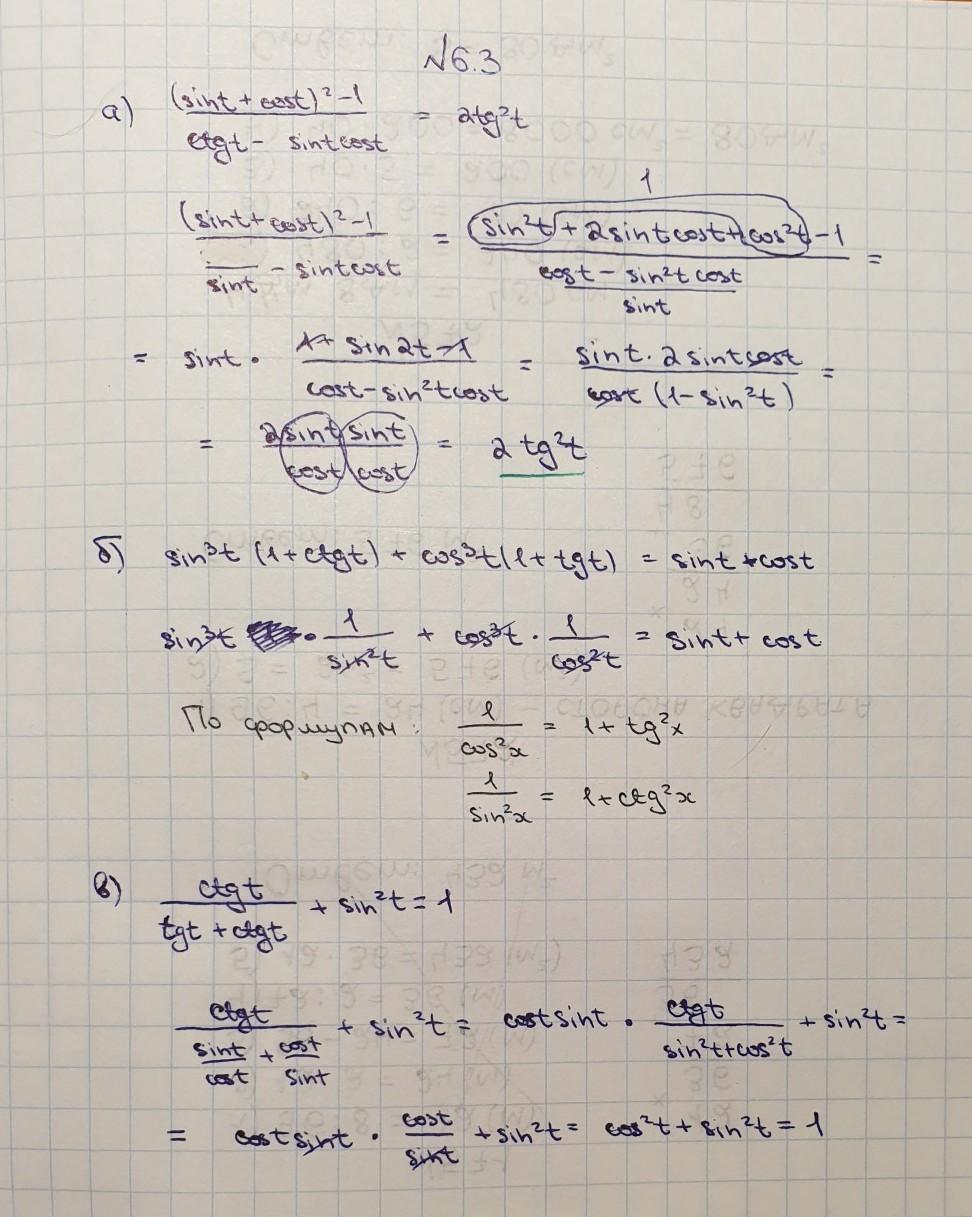 №6.3
а) ((sint + cost)² - 1)/(ctgt - sintcost) = 2tg²t
((sint + cost)² - 1)/(—/sint - sintcost) = (sin²t + 2sintcost + cos²t - 1)/((cost - sin²t cost)/sint) = 1
= sint · (1 + sin2t - 1)/(cost - sin²tcost) = (sint · 2sintcost)/(cost (1 - sin²t)) =
= (2sint sint)/(cost cost) = 2tg²t
б) sin³t (1 + ctgt) + cos³t (1 + tgt) = sint + cost
sin³t · 1/sin²t + cos³t · 1/cos²t = sint + cost
По формулам: 1/cos²x = 1 + tg²x
1/sin²x = 1 + ctg²x
в) ctgt/(tgt + ctgt) + sin²t = 1
ctgt/(sint/cost + cost/sint) + sin²t = costsint · ctgt/(sin²t + cos²t) + sin²t =
= costsint · cost/sint + sin²t = cos²t + sin²t = 1